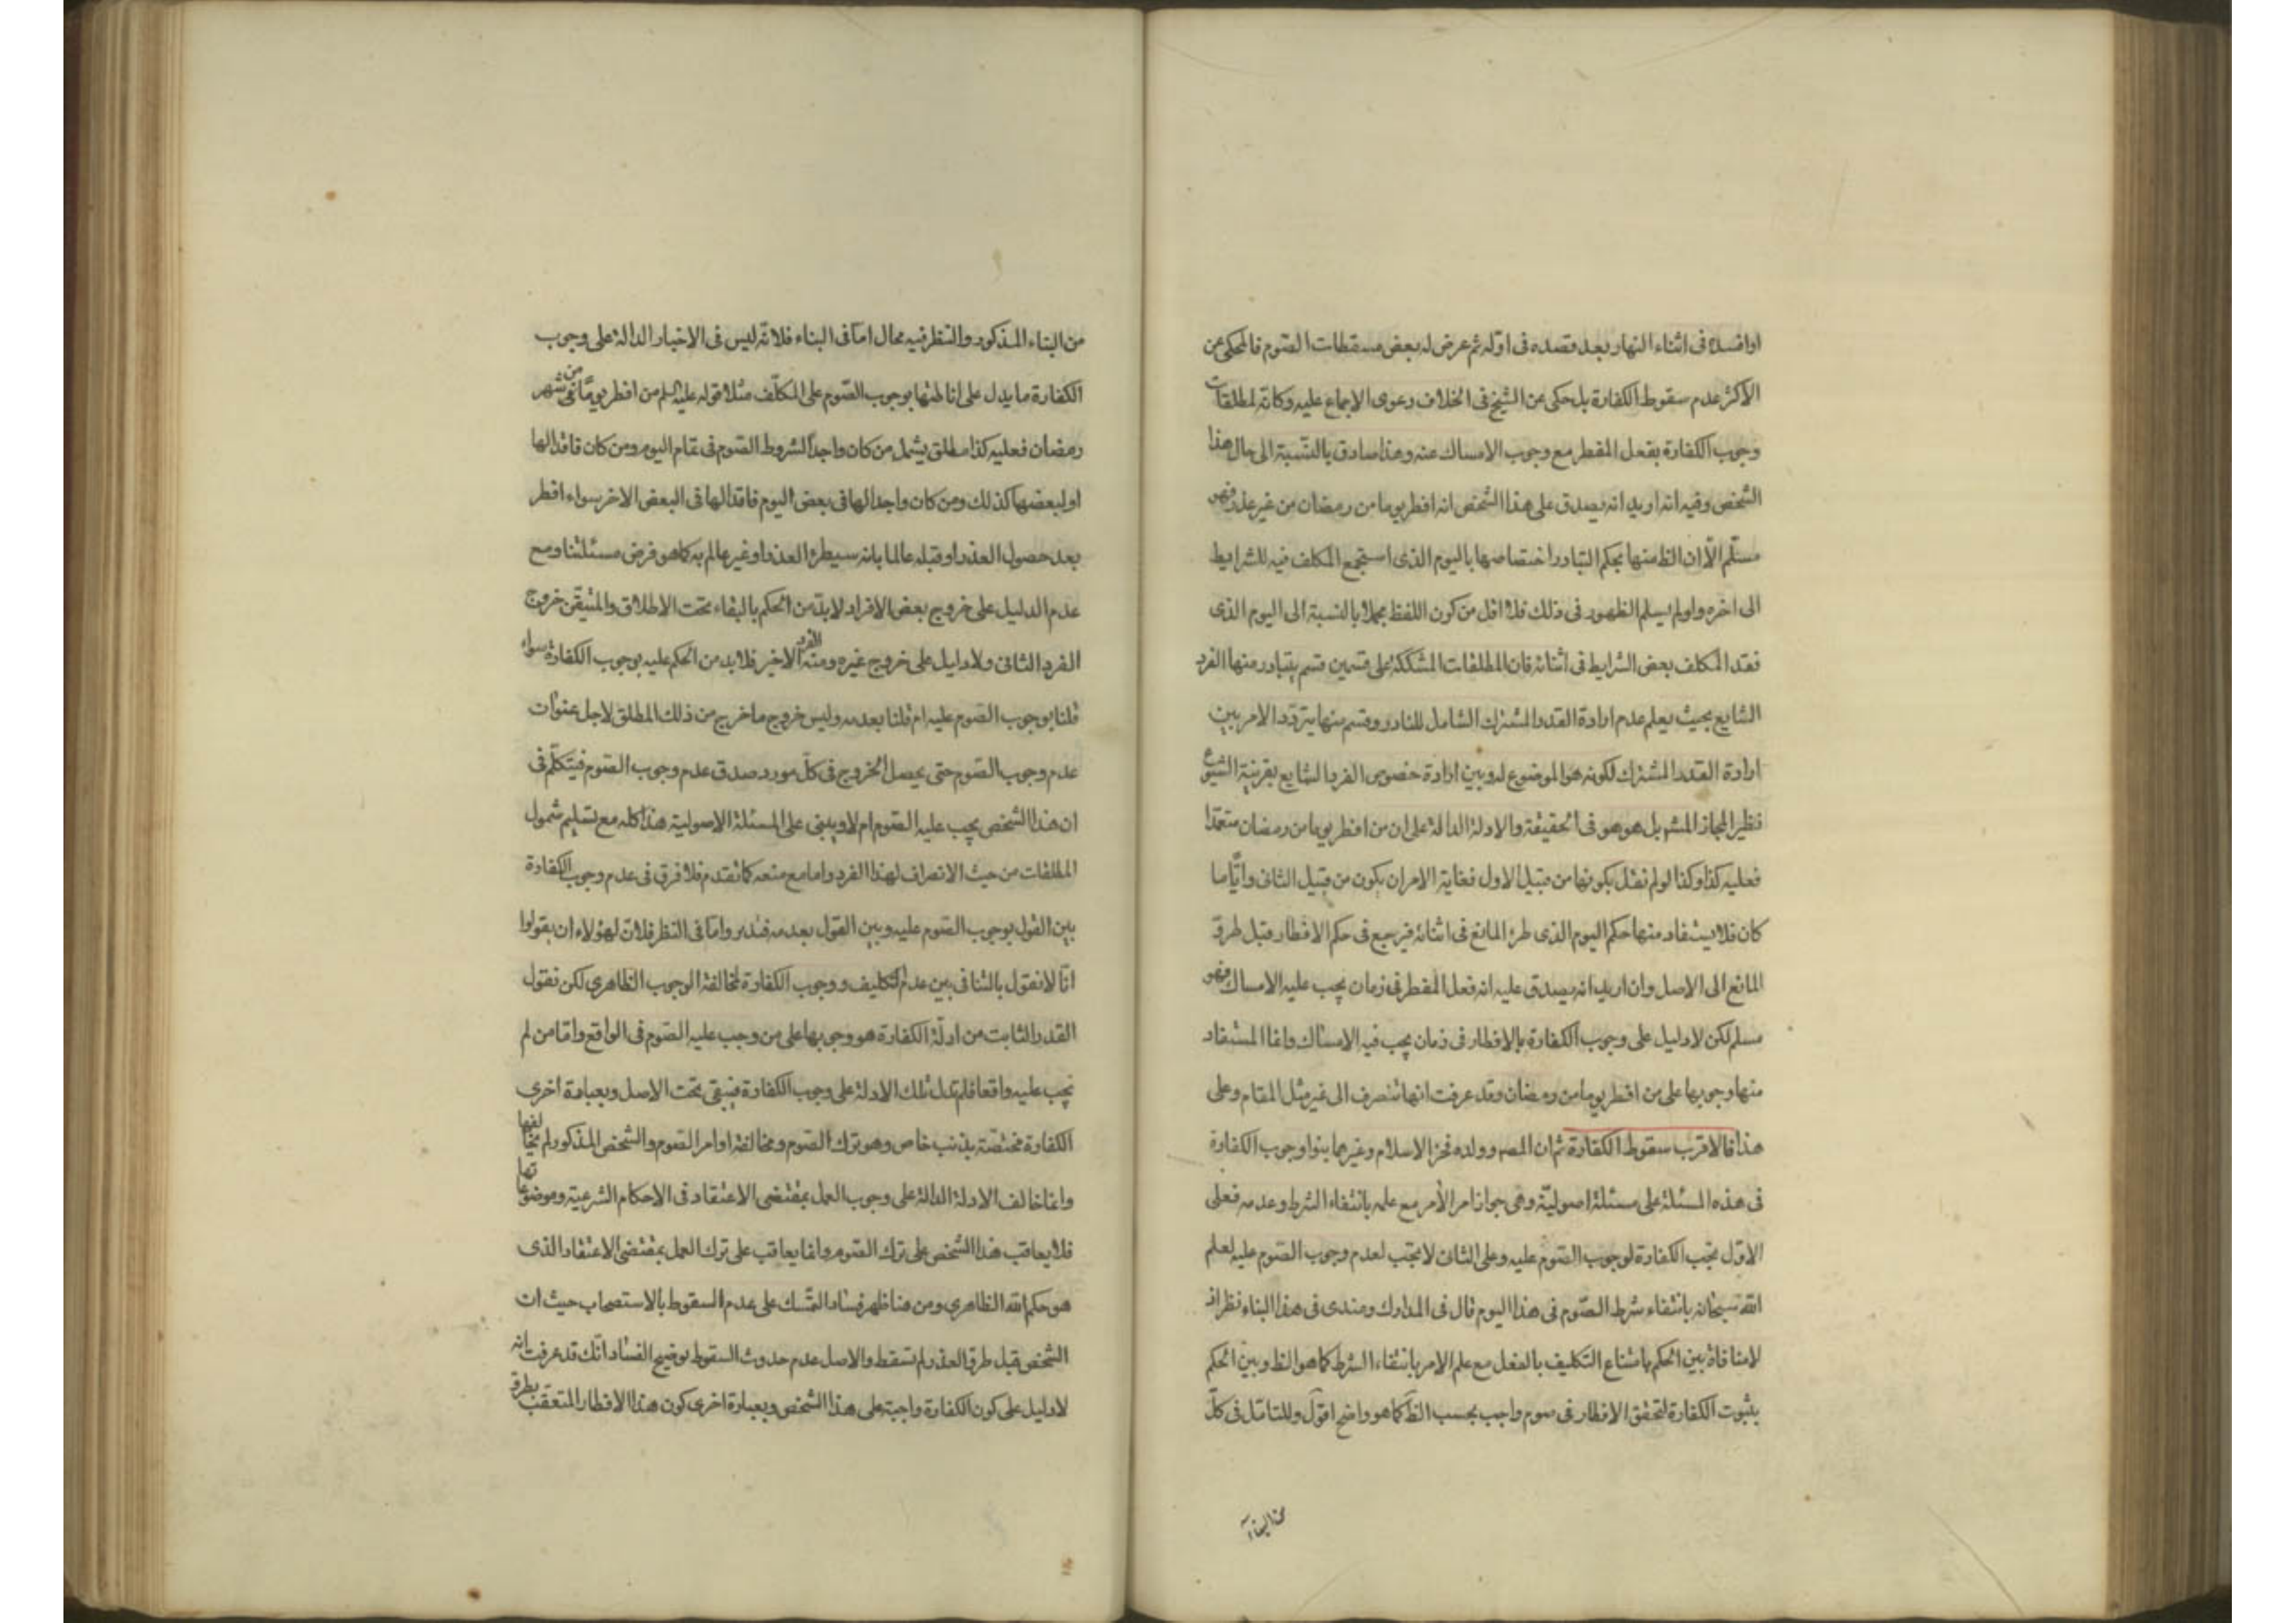 او افسده فى اثناء النهار بعد قصده فى اوّله ثم عرض له بعض مسقطات الصّوم فالمحكى عن
الاكثر عدم سقوط الكفارة بل حكى عن الشيخ فى الخلاف دعوى الاجماع عليه وكانّه لمطلقات
وجوب الكفارة بفعل المفطر مع وجوب الامساك عنه وهذا صادق بالنّسبة الى حال هذا
الشخص وفيه انه اريد انه يصدق على هذا الشخص انه افطر يوما من رمضان من غير عذر فهو
مسلّم الّا ان الظ منها بحكم التبادر اختصاصها باليوم الذى استجمع المكلف فيه للشرايط
الى اخره ولو لم يسلم الظهور فى ذلك فلا اقل من كون اللفظ مجملا بالنسبة الى اليوم الذى
فقد المكلف بعض الشرايط فى اثنائه فان المطلقات المشككة على قسمين قسم يتبادر منها الفرد
الشايع بحيث يعلم عدم ارادة القدر المشترك الشامل للنادر وقسم منها يتردّد الامر بين
ارادة القدر المشترك لكونه هو الموضوع له وبين ارادة خصوص الفرد الشايع بقرينة الشيوع
نظير المجاز المشهور بل هو هو فى الحقيقة والادلة الدالة على ان من افطر يوما من رمضان متعمّدا
فعليه كذا وكذا لو لم نقل بكونها من قبيل الاول فغاية الامر ان يكون من قبيل الثانى وايّاما
كان فلا يستفاد منها حكم اليوم الذى طرء المانع فى اثنائه فيرجع فى حكم الافطار قبل طروّ
المانع الى الاصل وان اريد انه يصدق عليه انه فعل المفطر فى زمان يجب عليه الامساك فهو
مسلم لكن لا دليل على وجوب الكفارة بالافطار فى زمان يجب فيه الامساك وانما المستفاد
منها وجوبها على من افطر يوما من رمضان وقد عرفت انها تنصرف الى غير مثل المقام وعلى
هذا فالاقرب سقوط الكفارة ثم ان المص وولده فخر الاسلام وغيرهما بنوا وجوب الكفارة
فى هذه المسئلة على مسئلة اصوليّة وهى جواز امر الآمر مع علمه بانتفاء الشرط وعدمه فعلى
الاوّل تجب الكفارة لوجوب الصّوم عليه وعلى الثانى لا تجب لعدم وجوب الصّوم عليه لعلم
الله سبحانه بانتفاء شرط الصّوم فى هذا اليوم قال فى المدارك وعندى فى هذا البناء نظر اذ
لا منافاة بين الحكم بامتناع التكليف بالفعل مع علم الامر بانتفاء الشرط كما هو الظ وبين الحكم
بثبوت الكفارة لتحقق الافطار فى صوم واجب بحسب الظ كما هو واضح اقول وللتامّل فى كلّ
من البناء
من البناء المذكور والنظر فيه مجال امّا فى البناء فلانّه ليس فى الاخبار الدالة على وجوب
الكفارة ما يدل على اناطتها بوجوب الصّوم على المكلّف مثلا قوله عليه السلم من افطر يومًا من شهر
رمضان فعليه كذا مطلق يشمل من كان واجدا لشروط الصّوم فى تمام اليوم ومن كان فاقدا لها
او لبعضها كذلك ومن كان واجدا لها فى بعض اليوم فاقدا لها فى البعض الاخر سواء افطر
بعد حصول العذر او قبله عالما بانه سيطرء العذر او غير عالم به كما هو فرض مسئلتنا ومع
عدم الدليل على خروج بعض الافراد لا بدّ من الحكم بالبقاء تحت الاطلاق والمتيقّن خروج
الفرد الثانى ولا دليل على خروج غيره ومنه الفرد الاخير فلا بد من الحكم عليه بوجوب الكفارة سواء
قلنا بوجوب الصّوم عليه ام قلنا بعدمه وليس خروج ما خرج من ذلك المطلق لاجل عنوان
عدم وجوب الصّوم حتى يحصل الخروج فى كلّ مورد صدق عدم وجوب الصّوم فيتكلّم فى
ان هذا الشخص يجب عليه الصّوم ام لا ويبنى على المسئلة الاصولية هذا كله مع تسليم شمول
المطلقات من حيث الانصراف لهذا الفرد واما مع منعه كما تقدم فلا فرق فى عدم وجوب الكفارة
بين القول بوجوب الصّوم عليه وبين القول بعدمه فتدبر وامّا فى النظر فلانّ لهؤلاء ان يقولوا
انّا لا نقول بالتنافى بين عدم التكليف ووجوب الكفارة لمخالفة الوجوب الظاهري لكن نقول
القدر الثابت من ادلّة الكفارة هو وجوبها على من وجب عليه الصّوم فى الواقع وامّا من لم
يجب عليه واقعا فلم تدل تلك الادلة على وجوب الكفارة فيبقى تحت الاصل وبعبارة اخرى
الكفارة مختصّة بذنب خاص وهو ترك الصّوم ومخالفة اوامر الصّوم والشخص المذكور لم يخالفها
وانما خالف الادلة الدالة على وجوب العمل بمقتضى الاعتقاد فى الاحكام الشرعيّة وموضوعاتها
فلا يعاقب هذا الشخص على ترك الصّوم وانما يعاقب على ترك العمل بمقتضى الاعتقاد الذى
هو حكم الله الظاهري ومن هنا ظهر فساد التمسّك على عدم السقوط بالاستصحاب حيث ان
الشخص قبل طروّ العذر لم تسقط والاصل عدم حدوث السقوط توضيح الفساد انّك قد عرفت انه
لا دليل على كون الكفارة واجبة على هذا الشخص وبعبارة اخرى كون هذا الافطار المتعقّب بطروّ